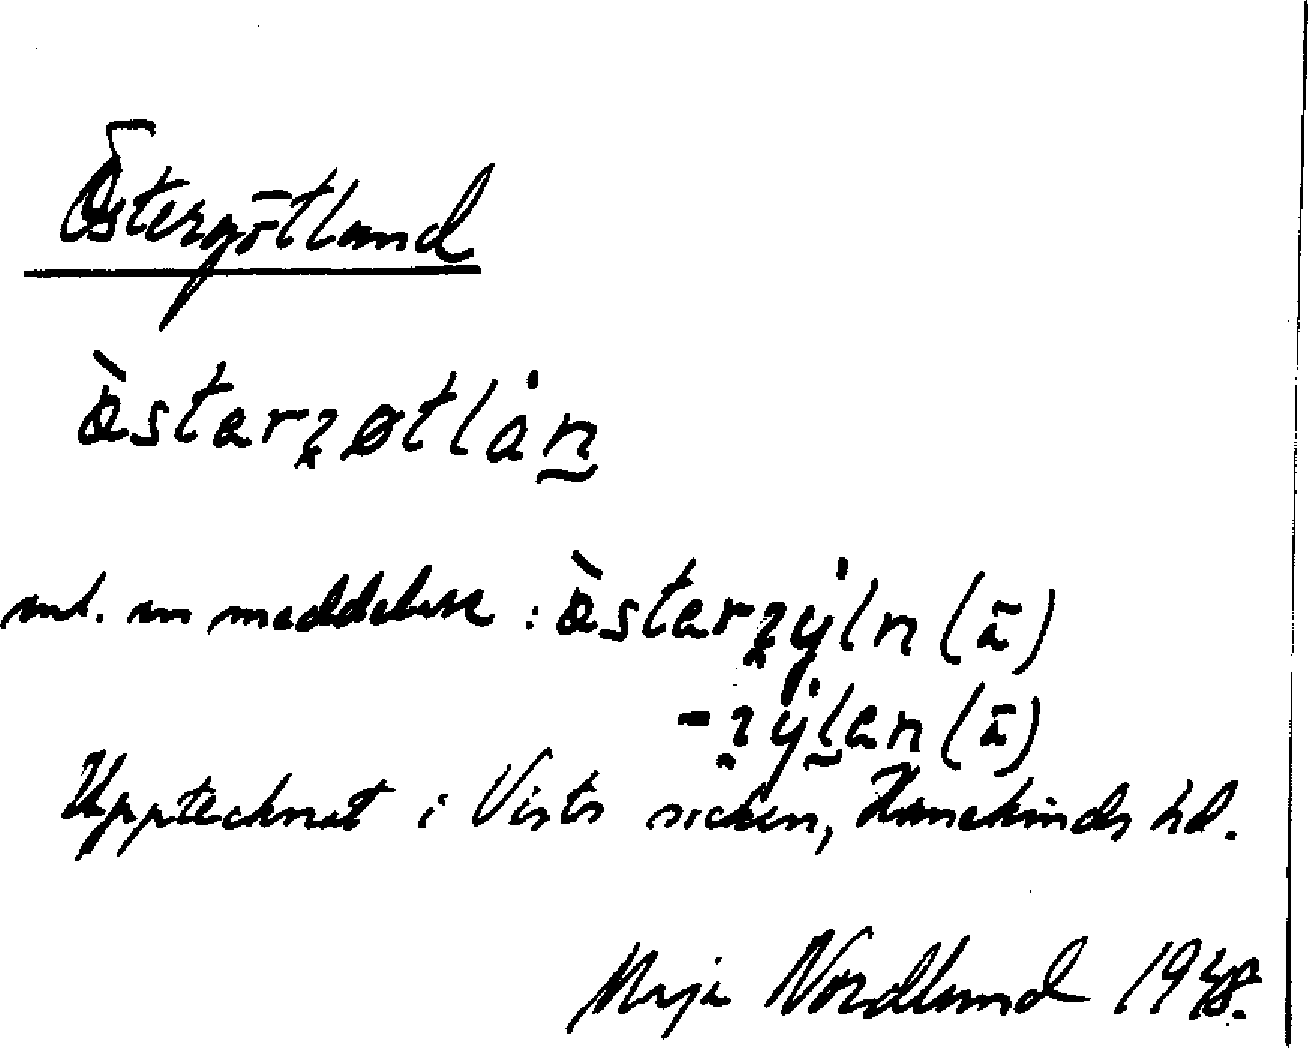 Östergötland
östarɡøtlån
enl. en meddelare: östarɡy̍ln (ā)
-ɡy̍lan (ā)
Upptecknat i Vists socken, Hanekinds hd.
Maja Nordlund 1948.